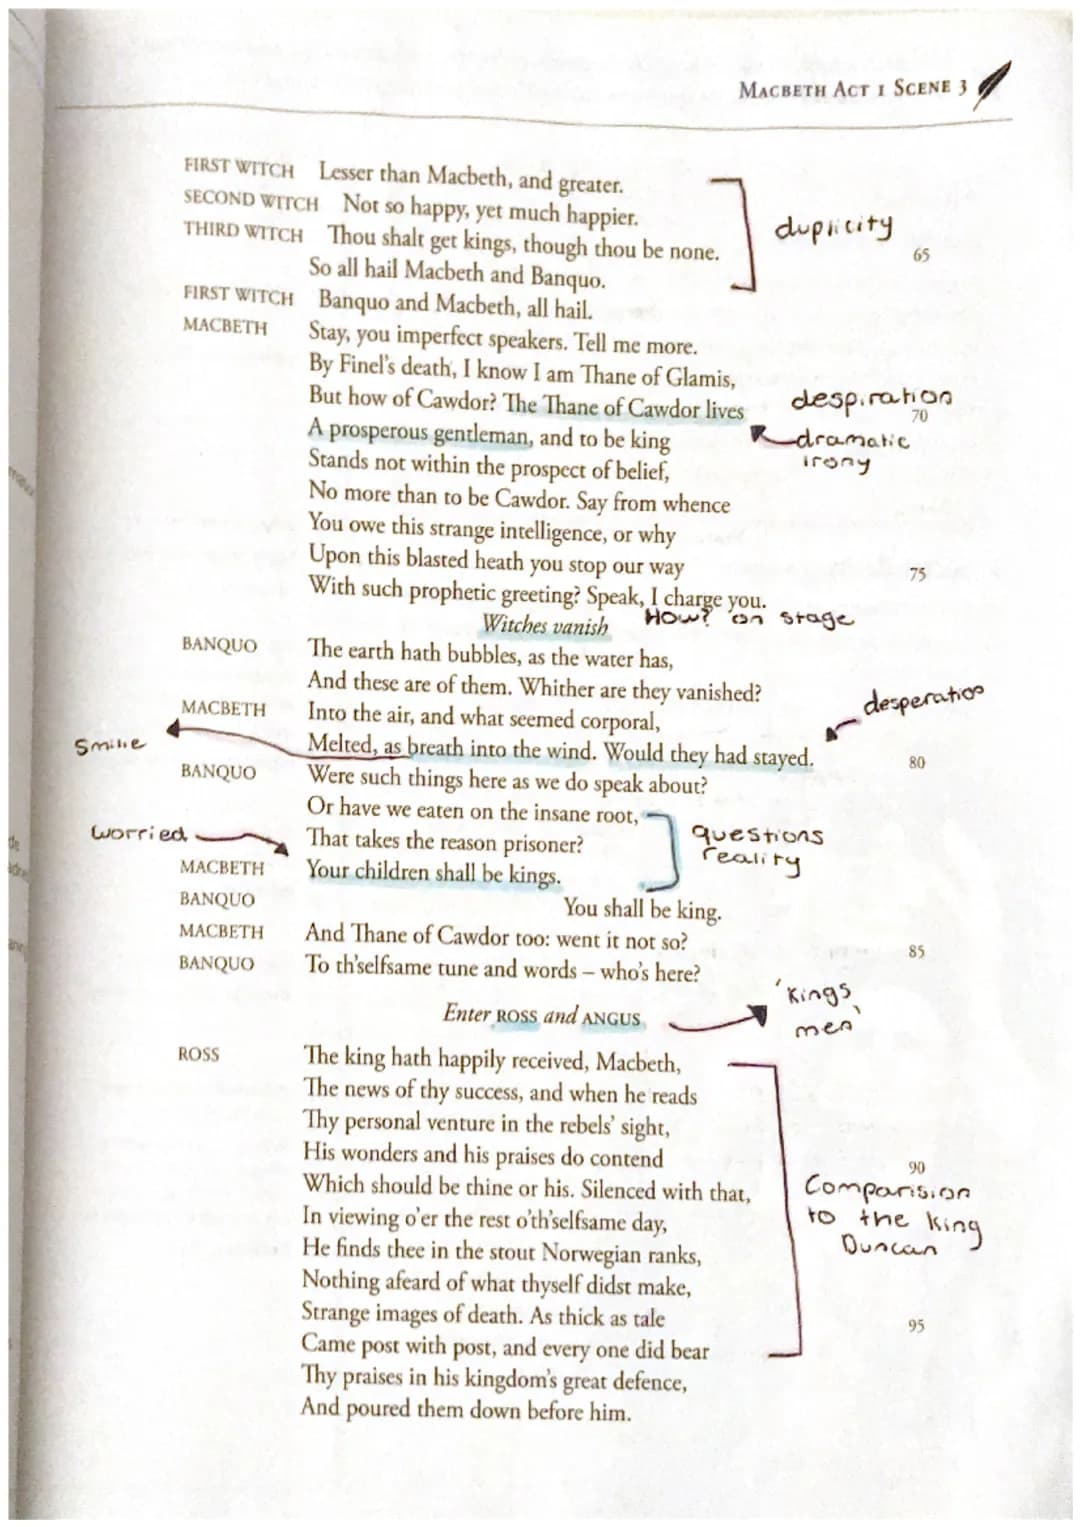 MACBETH ACT 1 SCENE 3
FIRST WITCH Lesser than Macbeth, and greater.
SECOND WITCH Not so happy, yet much happier.
duplicity
THIRD WITCH Thou shalt get kings, though thou be none.
65
So all hail Macbeth and Banquo.
FIRST WITCH Banquo and Macbeth, all hail.
MACBETH Stay, you imperfect speakers. Tell me more.
By Finel's death, I know I am Thane of Glamis,
But how of Cawdor? The Thane of Cawdor lives
despiration
70
A prosperous gentleman, and to be king
dramatic
irony
Stands not within the prospect of belief,
No more than to be Cawdor. Say from whence
You owe this strange intelligence, or why
Upon this blasted heath you stop our way
75
With such prophetic greeting? Speak, I charge you.
Witches vanish
How? on stage
BANQUO The earth hath bubbles, as the water has,
And these are of them. Whither are they vanished?
desperation
MACBETH Into the air, and what seemed corporal,
Smilie
Melted, as breath into the wind. Would they had stayed.
80
BANQUO Were such things here as we do speak about?
Or have we eaten on the insane root,
worried
That takes the reason prisoner?
questions
reality
MACBETH Your children shall be kings.
BANQUO You shall be king.
MACBETH And Thane of Cawdor too: went it not so?
85
BANQUO To th'selfsame tune and words – who's here?
'Kings
men'
Enter ROSS and ANGUS
ROSS The king hath happily received, Macbeth,
The news of thy success, and when he reads
Thy personal venture in the rebels' sight,
His wonders and his praises do contend
90
Which should be thine or his. Silenced with that,
Comparision
to the King
Duncan
In viewing o'er the rest o'th'selfsame day,
He finds thee in the stout Norwegian ranks,
Nothing afeard of what thyself didst make,
Strange images of death. As thick as tale
95
Came post with post, and every one did bear
Thy praises in his kingdom's great defence,
And poured them down before him.